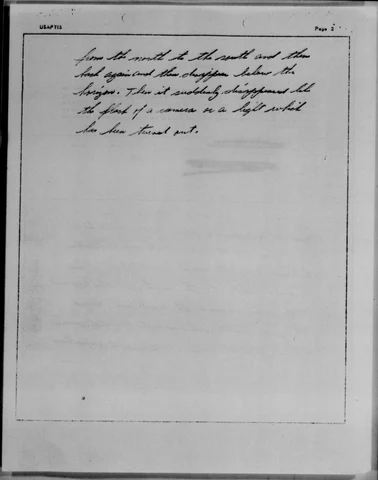 USAPTIS
Page 2
from the north to the south and then
back again and then disappear below the
horizon. Then it suddenly disappeared like
the flash of a camera or a light which
has been turned out.